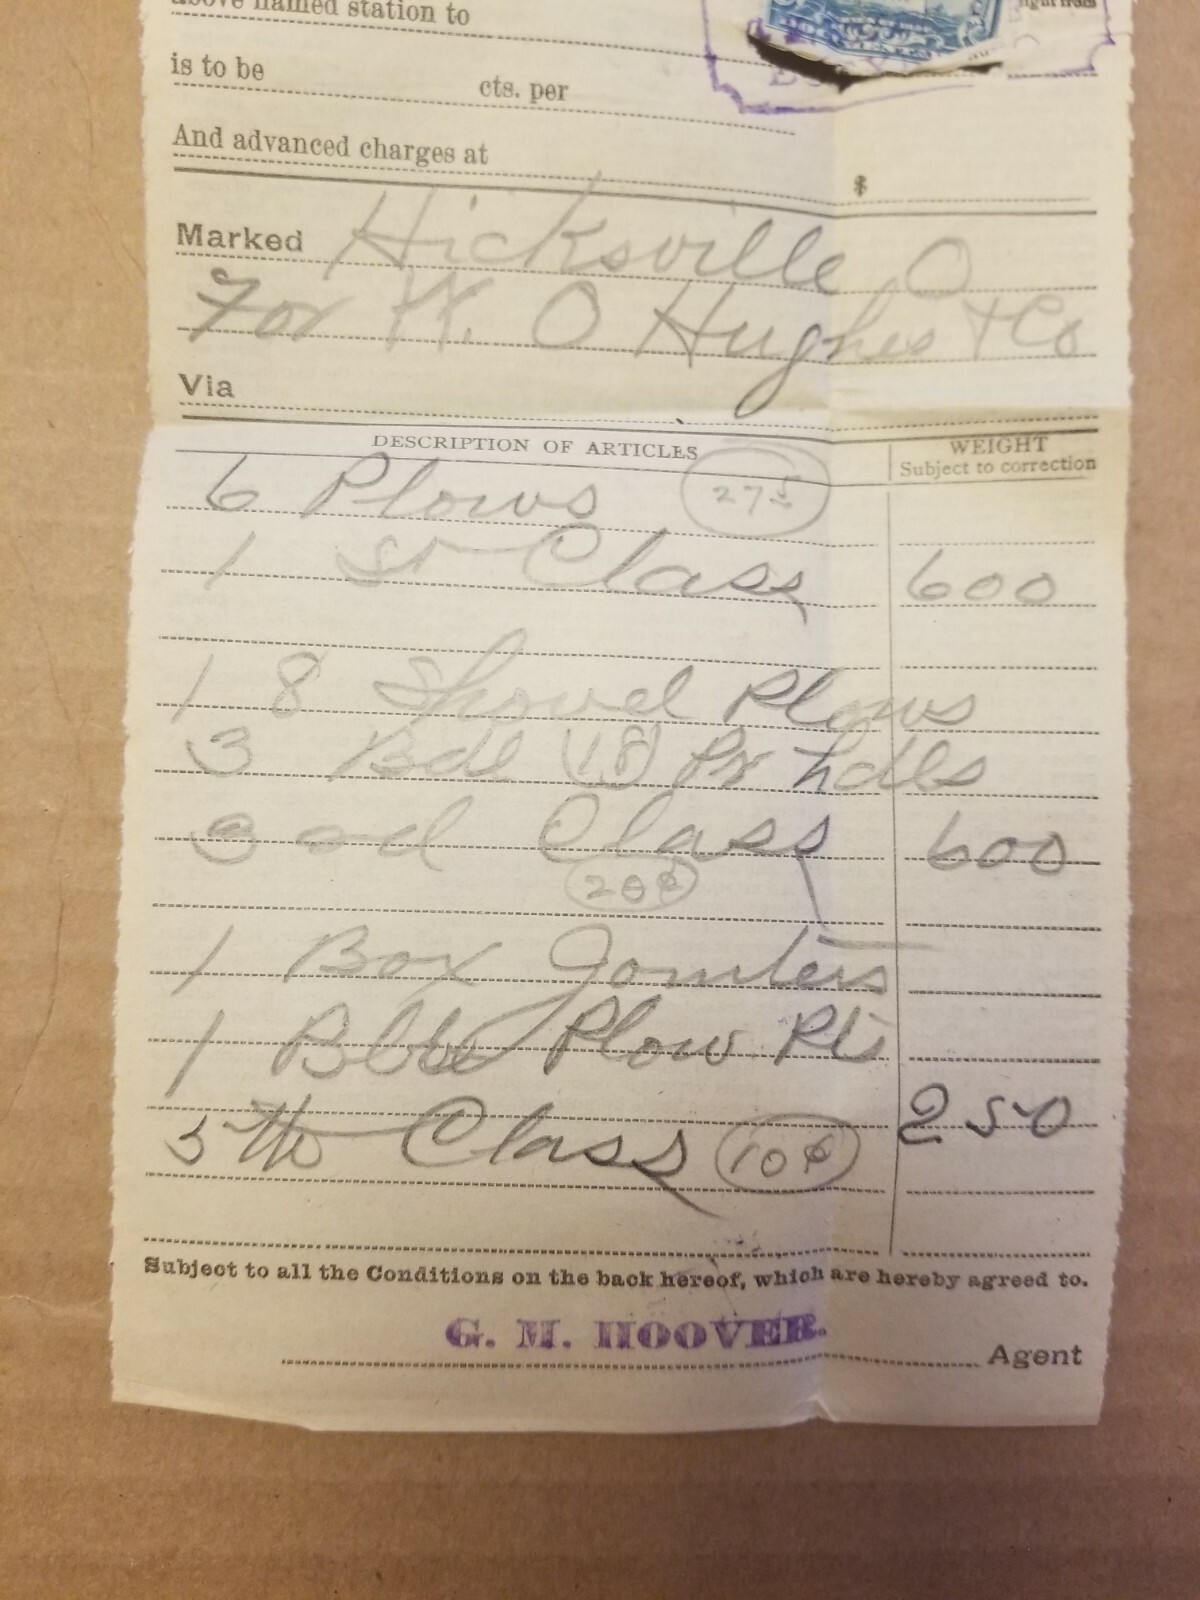 above named station to
is to be cts. per
And advanced charges at $
Marked Hicksville O
For K. O Hughes & Co
Via
DESCRIPTION OF ARTICLES WEIGHT
Subject to correction
6 Plows 27½
1 St Class 600
18 Shovel Plows
3 Bdl (18) Pr hdls
3rd Class 600
20¢
1 Box Jointers
1 Bbl Plow Pts
5th Class 10¢ 250
Subject to all the Conditions on the back hereof, which are hereby agreed to.
G. M. HOOVER.
Agent